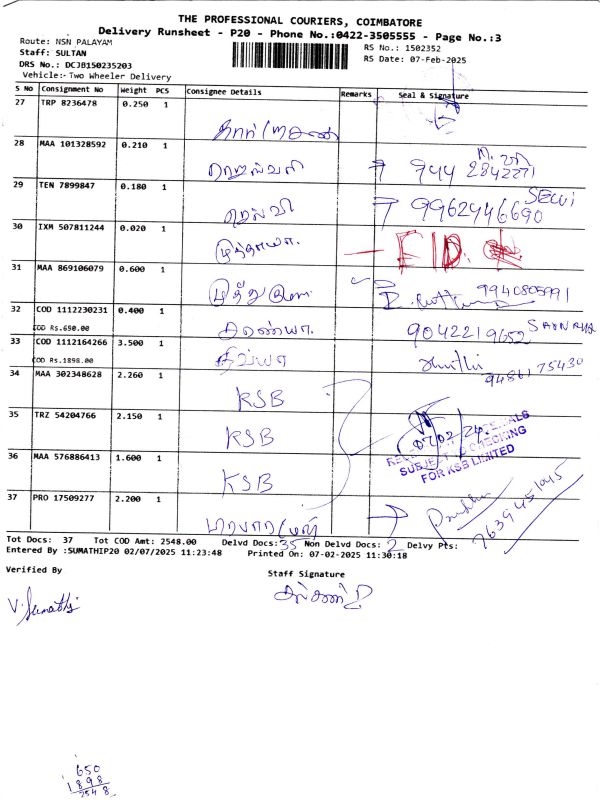 THE PROFESSIONAL COURIERS, COIMBATORE
Delivery Runsheet - P20 - Phone No.:0422-3505555 - Page No.:3
Route: NSN PALAYAM
RS No.: 1502352
Staff: SULTAN
RS Date: 07-Feb-2025
DRS No.: DCJB150235203
Vehicle:- Two Wheeler Delivery
S No Consignment No Weight PCS Consignee Details Remarks Seal & Signature
27 TRP 8236478 0.250 1
28 MAA 101328592 0.210 1
744 2842271
29 TEN 7899847 0.180 1
செல்வி 9962446690 SELVI
30 IXM 507811244 0.020 1
முத்தையா.
31 MAA 869106079 0.600 1
9940805991
32 COD 1112230231 0.400 1
COD Rs.650.00
9042219652
33 COD 1112164266 3.500 1
COD Rs.1898.00
திவ்யா 9486175430
34 MAA 302348628 2.260 1
KSB
35 TRZ 54204766 2.150 1
KSB
SUBJECT TO CHECKING
FOR KSB LIMITED
36 MAA 576886413 1.600 1
KSB
37 PRO 17509277 2.200 1
7639451045
Tot Docs: 37 Tot COD Amt: 2548.00 Delvd Docs: 35 Non Delvd Docs: 2 Delvy Pts:
Entered By :SUMATHIP20 02/07/2025 11:23:48 Printed On: 07-02-2025 11:30:18
Verified By Staff Signature
V. Sumathi
650
1898
2548